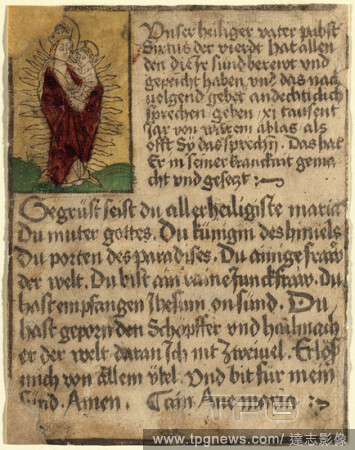 Vnser heiliger vater pabst
Sixtus der vierdt hat allen
den die Jr sund berewt und
gepeicht haben vnd das nach
uolgend gebet andechticlich
sprechen geben xi tausent
Jar von warem ablas als
offt Sy das sprechn. Das hat
Er in seiner kranckait gema
cht und gesetzt :~
Gegrüst seist du aller heiligiste maria
Du muter gottes. Du künigin des himels
Du porten des paradises. Du ainige fraw
der welt. Du bist ain raine Junckfraw. Du
hast empfangen Jhesum on sünd. Du
hast geporn den Schöpffer und hailmach
er der welt daran Jch nit zweiuel. Erlöß
mich von allem übel. Und bit für mein
sünd. Amen. Ain Aue maria :~
www.tpgnews.com/達志影像